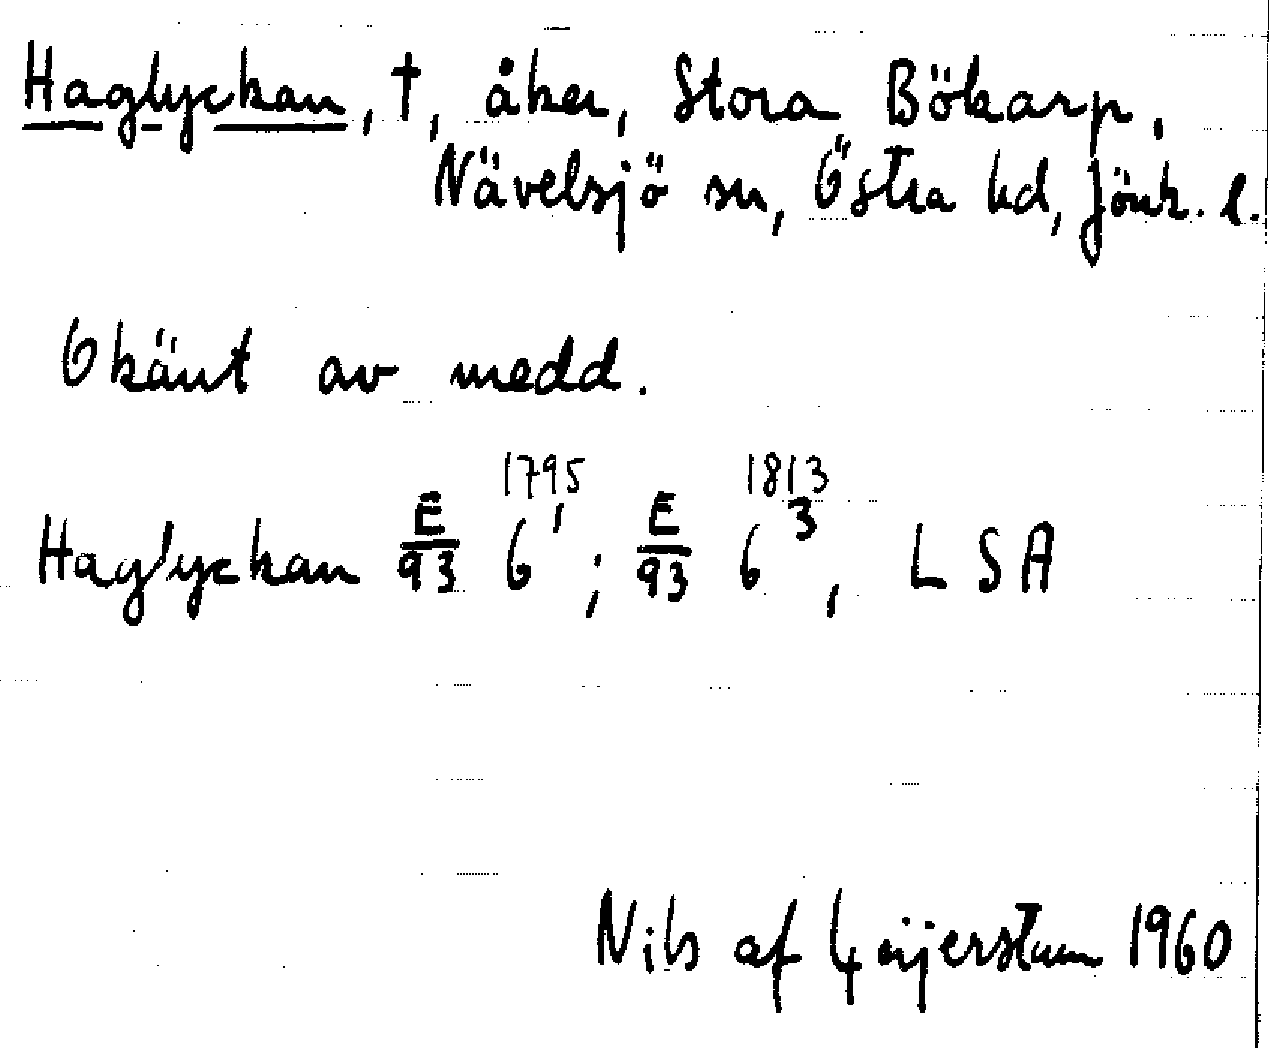 Haglyckan, †, åker, Stora Bökarp,
Nävelsjö sn, Östra hd, Jönk. l.
Okänt av medd.
Haglyckan E/93 6¹ 1795; E/93 6³ 1813, LSA
Nils af Geijerstam 1960